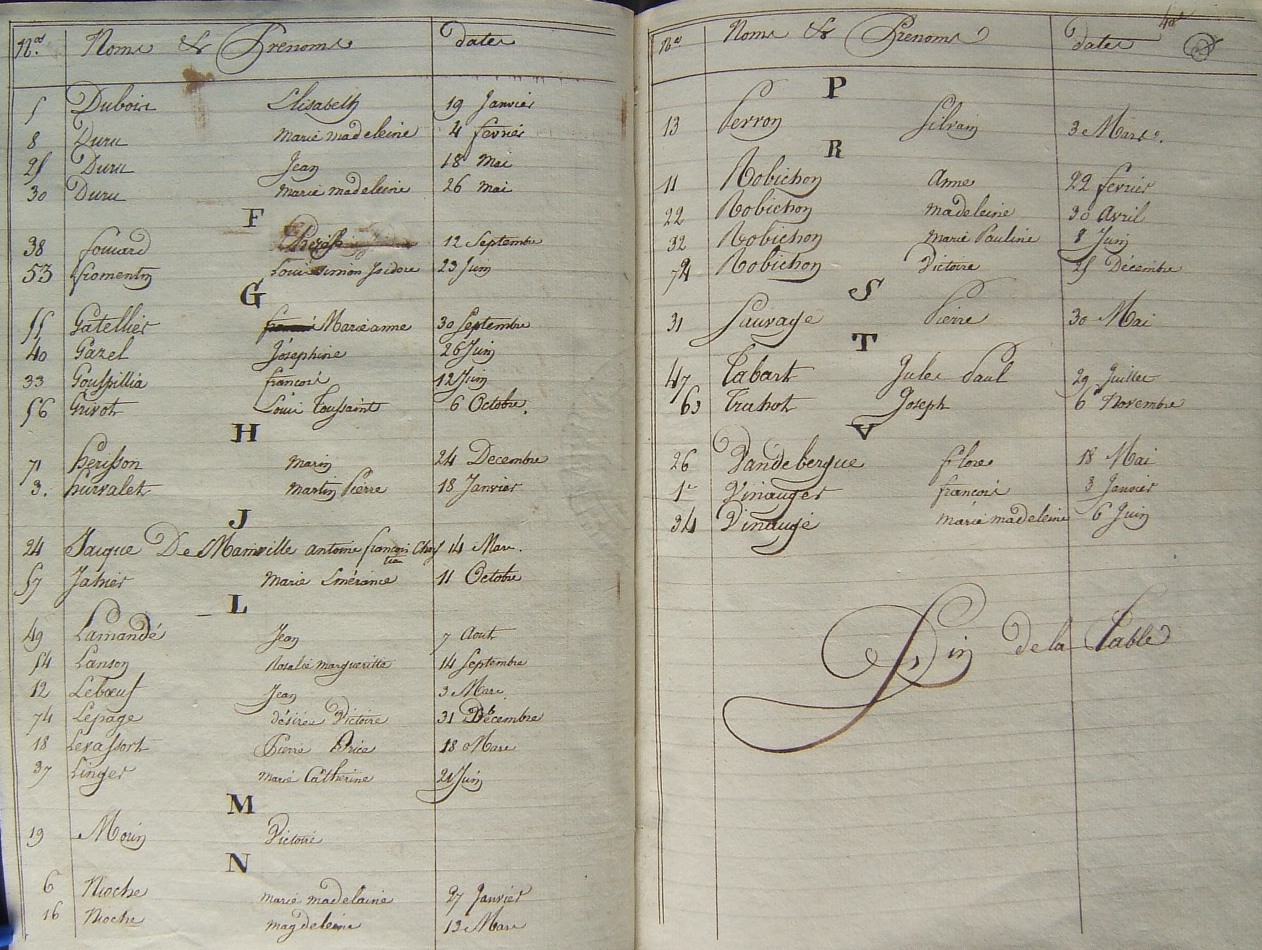 Nos Noms & Prenoms dates
5 Dubois Elisabeth 19 Janvier
8 Duru Marie madeleine 4 fevrier
25 Duru Jean 18 mai
30 Duru marie madeleine 26 mai
F
38 fouard Thérèse 12 Septembre
53 fromentin Louis Simon Isidore 23 Juin
G
55 Gatellier Marie anne 30 Septembre
40 Gazel Joséphine 26 Juin
33 Gouspillia francois 12 Juin
56 Grivot Louis Toussaint 6 Octobre.
H
71 herisson Marin 24 Decembre
3. hurvalet Martin Pierre 18 Janvier
J
24 Jaique De Mainville antoine francois 14 Mars.
57 Jahier Marie Emérance 11 Octobre
L
49 Lamandé Jean 7 Aout
54 Lanson Rosalie margueritte 14 Septembre
12 Lebœuf Jean 3 Mars.
74 Lepage désirée Victoire 31 Décembre
18 Levassort Pierre Brice 18 Mars
37 Linger Marie Catherine 21 Juin
M
19 Morin Victoire
N
6 Nioche marie madelaine 27 Janvier
16 Nioche magdeleine 13 Mars
Nos Noms & Prenoms dates
P
13 Perron Silvain 3 Mars.
R
11 Robichon Anne 22 fevrier
22 Robichon Madeleine 30 Avril
32 Robichon Marie Pauline 8 Juin
72 Robichon Victoire 25 Décembre
S
31 Sauvage Pierre 30 Mai
T
47 Tabart Jules Paul 29 Juillet
63 Trahot Joseph 6 Novembre
V
26 Vandebergue flore 18 Mai
1er Vinauger francois 3 Janvier
34 Vinaugé marie madeleine 6 Juin
Fin de la Table